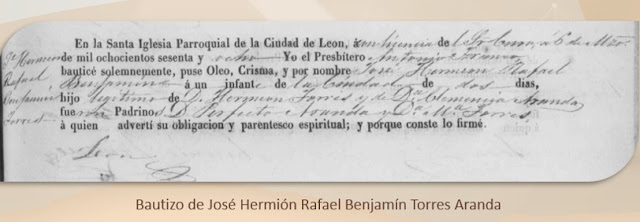 En la Santa Iglesia Parroquial de la Ciudad de Leon, á con licencia del Sr Cura, á 6 de Mzo.
de mil ochocientos sesenta y ocho Yo el Presbítero Antonio
bauticé solemnemente, puse Oleo, Crisma, y por nombre José Hermion Rafael
Benjamin á un infante de la Ciudad de dos días,
hijo legitimo de D. Hermion Torres y de Da. Clemencia Aranda
fueron Padrinos D. Perfecto Aranda y Da. Ma. Torres,
á quien advertí su obligacion y parentesco espiritual; y porque conste lo firmé.
Jé Hermion
Rafael
Benjamin
Torres
Leon
Bautizo de José Hermión Rafael Benjamín Torres Aranda